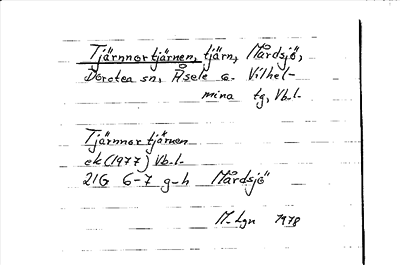 Tjärnnortjärnen, tjärn, Mårdsjö,
Dorotea sn, Åsele o. Vilhel-
mina tg, Vb.l.
Tjärnnortjärnen
ek (1977) Vb.l.
21G 6-7 g-h Mårdsjö
M-Lgn 1978